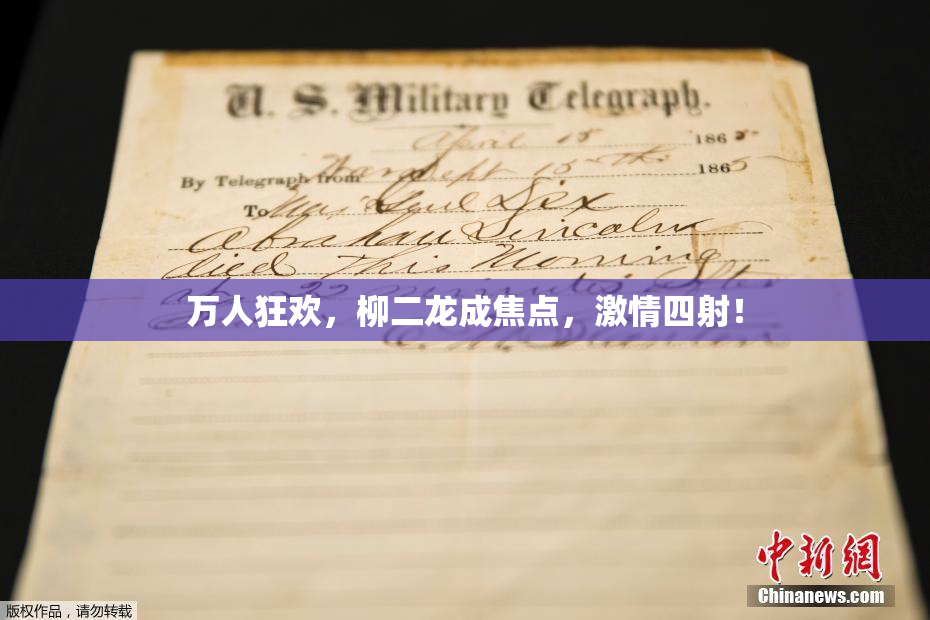 U. S. Military Telegraph.
April 15 1865
By Telegraph from War Dept 15th 1865
To Maj Genl Dix
Abraham Lincoln
died This Morning
at 22 minutes after
万人狂欢，柳二龙成焦点，激情四射！
E. M. Stanton
中新網
Chinanews.com
版权作品，请勿转载